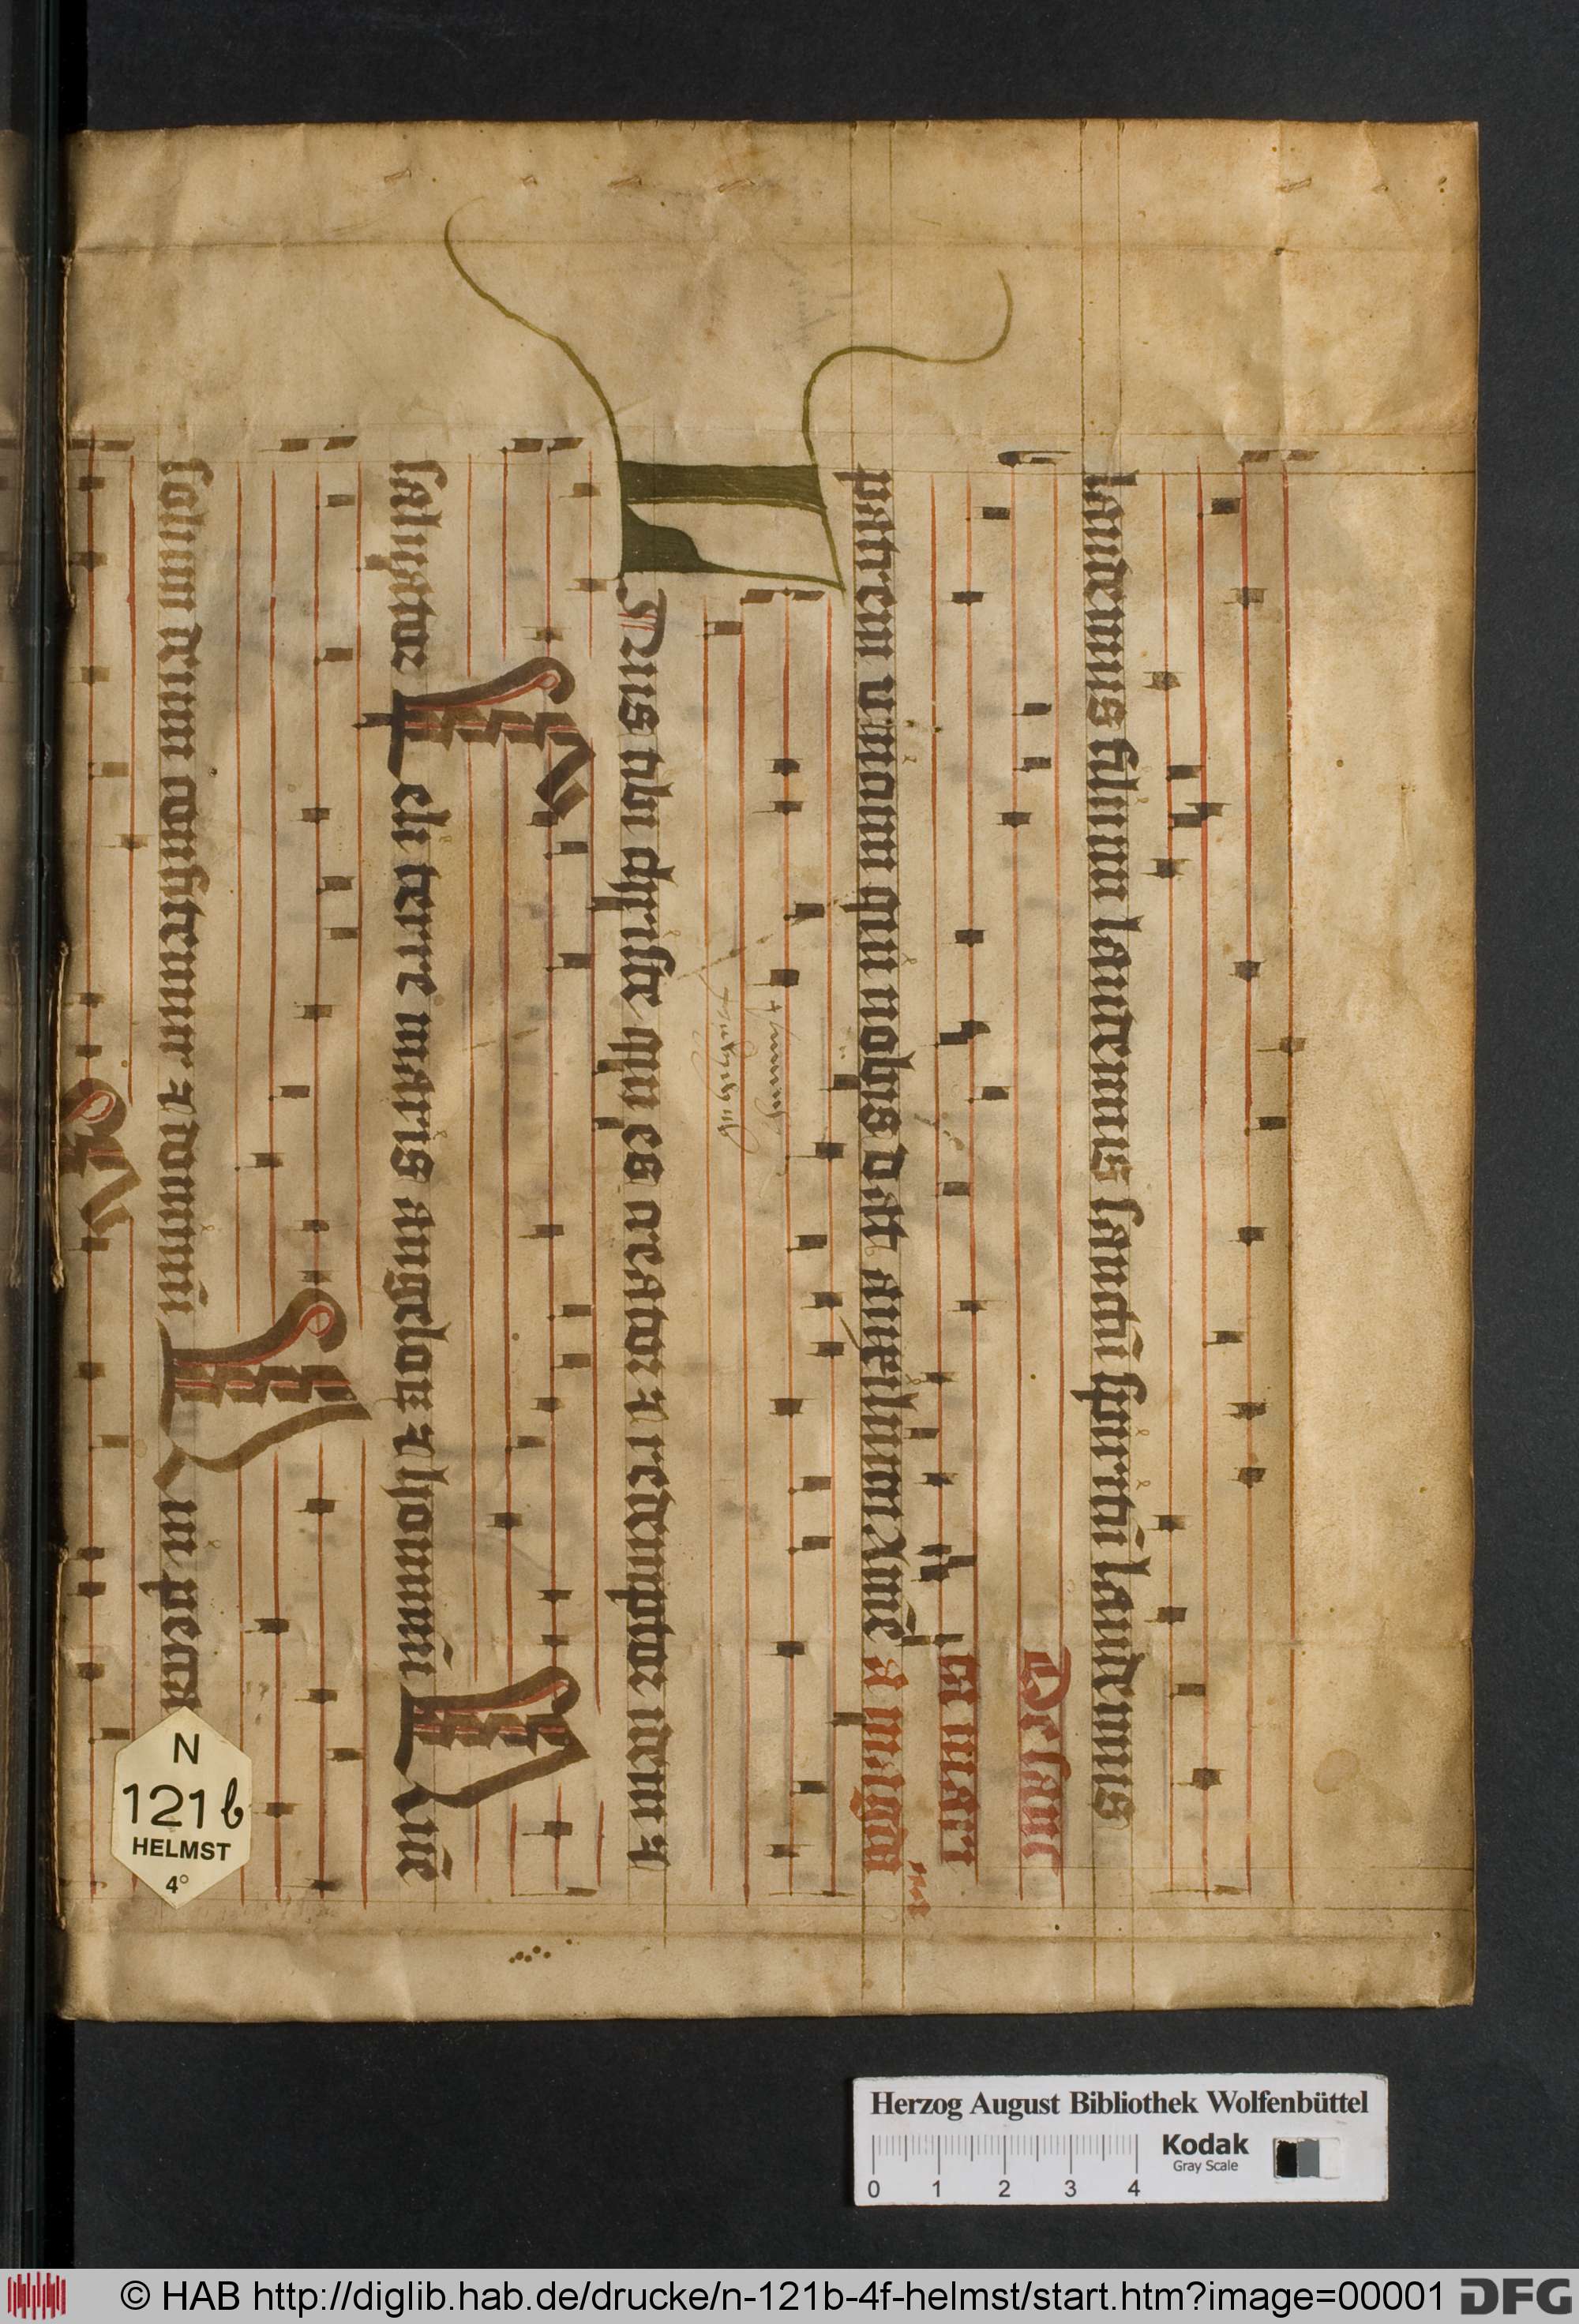 laudemus filium laudemus sanctū spiritū laudemus
De sanc
ta mari
a magda
qui nobis
Laus tibi christe qui es creator ⁊ redemptor idem ⁊
saluator Celi terre maris angeloꝝ ⁊ hominū Quē
solum deum confitemur ⁊ dominū Qui pecca
N
121b
HELMST
4°
Herzog August Bibliothek Wolfenbüttel
Kodak
Gray Scale
0 1 2 3 4
© HAB http://diglib.hab.de/drucke/n-121b-4f-helmst/start.htm?image=00001 DFG